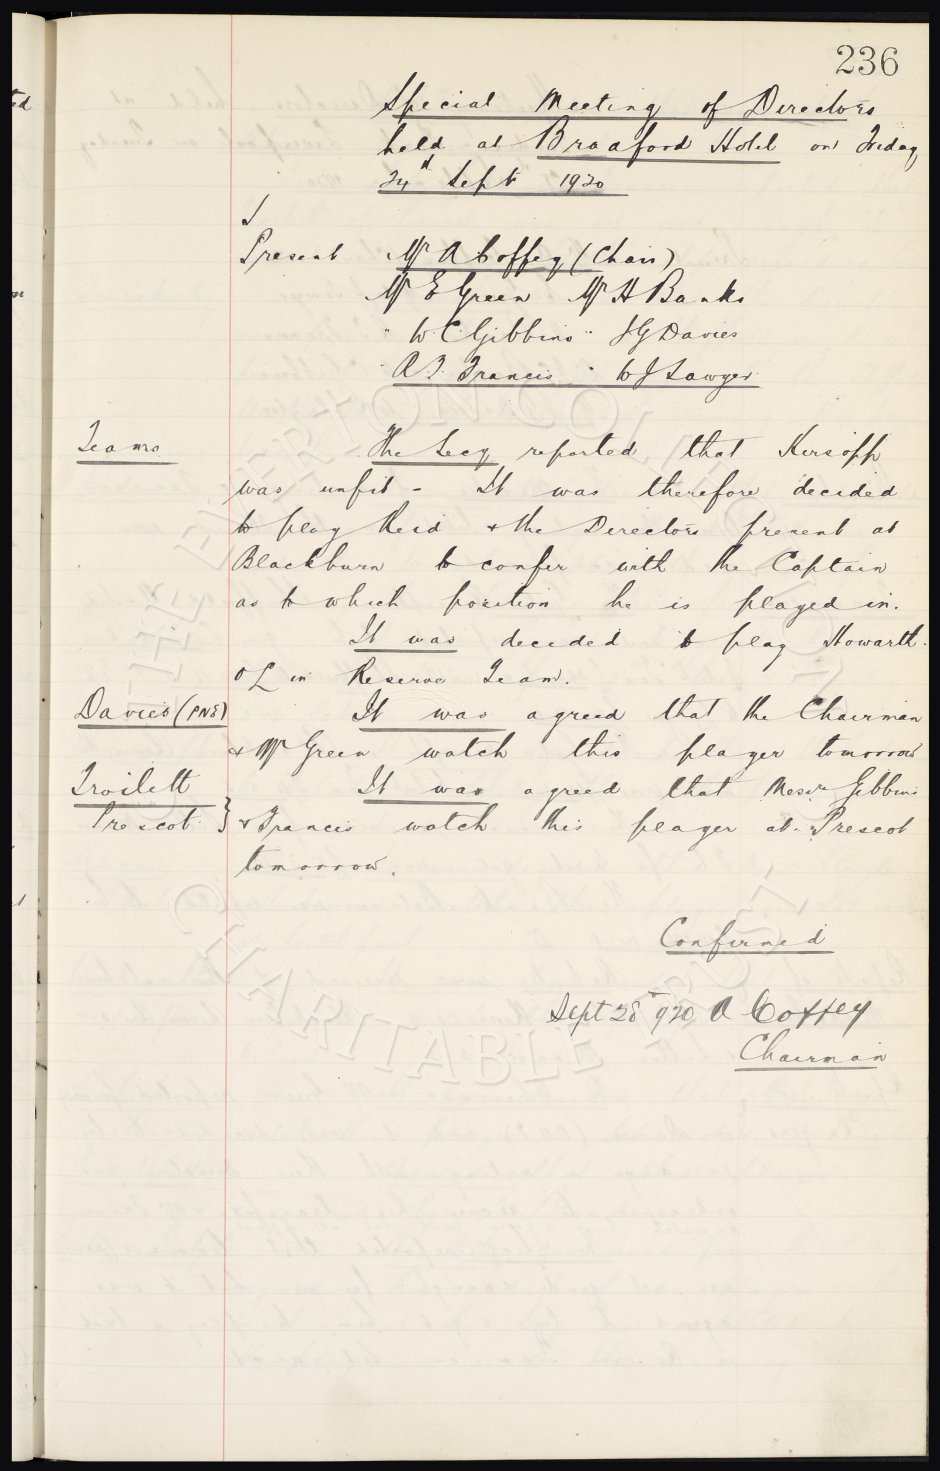 236
Special Meeting of Directors
held at Bradford Hotel on Friday
24th Sept 1920
Present Mr A Coffey (Chair)
Mr E Green Mr H Banks
" W C Gibbins " J G Davies
" A T. Francis " W J Sawyer
Teams The Secy reported that Kersopp
was unfit - It was therefore decided
to play Reid & the Directors present at
Blackburn to confer with the Captain
as to which position he is played in.
It was decided to play Howarth
O L in Reserve Team.
Davies (PNE) It was agreed that the Chairman
& Mr Green watch this player tomorrow
Troilett It was agreed that Messrs Gibbins
Prescot } & Francis watch this player at Prescot
tomorrow.
Confirmed
Sept 28th 920 A Coffey
Chairman
THE EVERTON COLLECTION
CHARITABLE TRUST